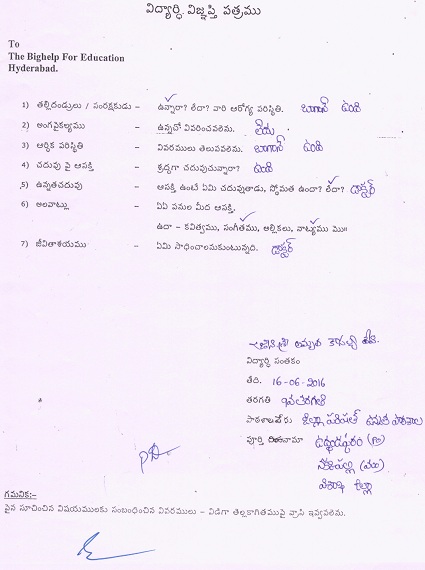 విద్యార్థి విజ్ఞప్తి పత్రము
To
The Bighelp For Education
Hyderabad.
1) తల్లిదండ్రులు / సంరక్షకుడు – ఉన్నారా? లేదా? వారి ఆరోగ్య పరిస్థితి. బాగానే ఉంది
2) అంగవైకల్యము – ఉన్నచో వివరించవలెను. లేదు
3) ఆర్థిక పరిస్థితి – వివరములు తెలుపవలెను. బాగానే ఉంది
4) చదువు పై ఆసక్తి – శ్రద్ధగా చదువుచున్నారా? ఉంది
5) ఉన్నతచదువు – ఆసక్తి ఉంటే ఏమి చదువుతాడు, స్తోమత ఉందా? లేదా? డాక్టర్
6) అలవాట్లు – ఏఏ పనుల మీద ఆసక్తి.
ఉదా – కవిత్వము, సంగీతము, అల్లికలు, నాట్యము మొ॥
7) జీవితాశయము – ఏమి సాధించాలనుకుంటున్నది. డాక్టర్
విద్యార్థి సంతకం
తేది. 16-06-2016
తరగతి
పాఠశాలపేరు జిల్లా పరిషత్ ఉన్నత పాఠశాల
పూర్తి చిరునామా
జిల్లా
గమనిక:-
పైన సూచించిన విషయములకు సంబంధించిన వివరములు – విడిగా తెల్లకాగితముపై వ్రాసి ఇవ్వవలెను.